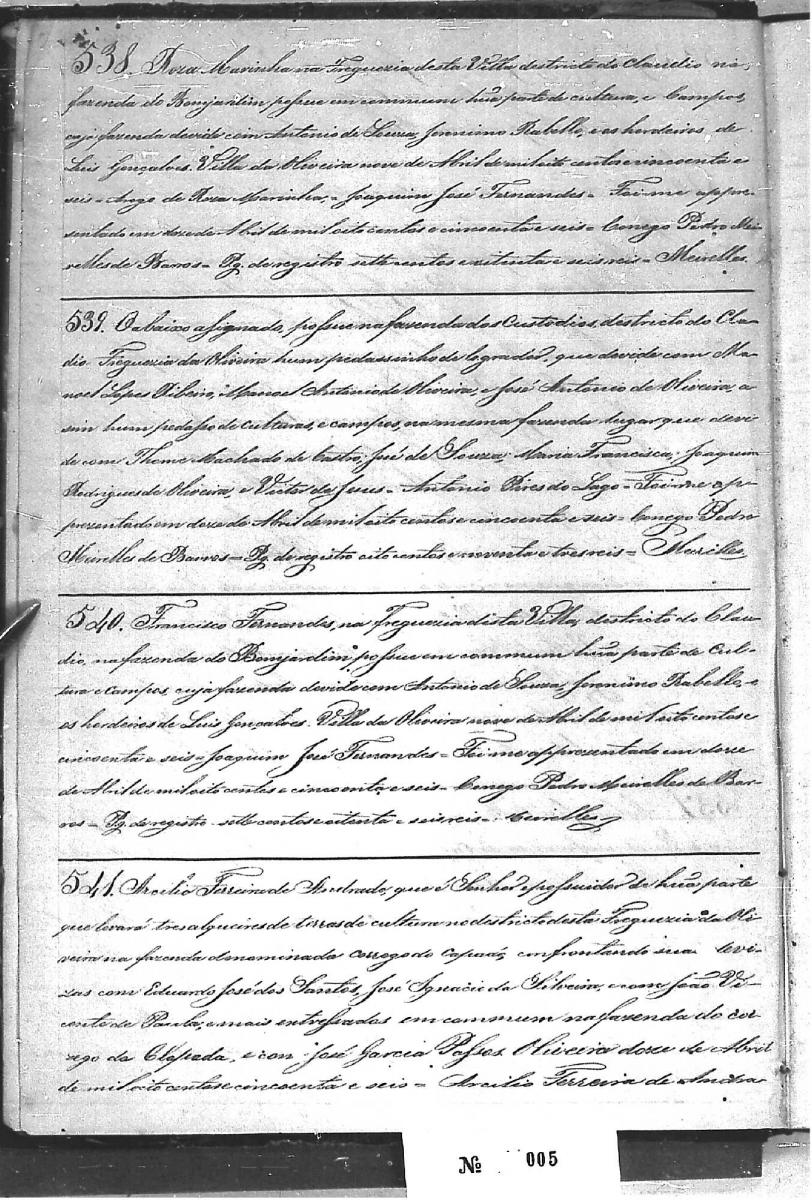 538. Roza Marinha na Freguezia desta Villa destricto do Claudio na
fazenda do Bomjardim possue em commum hũa parte de cultura, e Campos,
cuja fazenda devide com Antonio de Souza, Jeronimo Rabello, e os herdeiros de
Luis Gonçalves. Villa da Oliveira nove de Abril de mil oito centos e cincoenta e
seis = Arogo de Roza Marinha, = Joaquim José Fernandes = Foi me appre-
sentado em doze de Abril de mil oito centos e cincoenta e seis = Conego Pedro Mei-
relles de Barros = Pg. de registro sette centos e oitenta e seis reis = Meirelles.
539. O abaixo assignado, possue na fazenda dos Custodios, destricto do Clau-
dio Freguezia da Oliveira hum pedassinho de logrador, que devide com Ma-
noel Lopes Ribeiro, Manoel Antonio de Oliveira, e José Antonio de Oliveira, a
sim hum pedasso de culturas, e campos, na mesma fazenda lugar que devi-
de com Thome Machado de Castro, José de Souza, Maria Francisca, Joaquim
Rodrigues de Oliveira, e Victor de Jesus = Antonio Pires do Lago = Foi me ap-
prezentado em doze de Abril de mil oito centos e cincoenta e seis = Conego Pedro
Meirelles de Barros = Pg. de registro oito centos e noventa e tres reis = Meirelles
540. Francisco Fernandes, na Freguezia desta Villa, destricto do Clau-
dio, na fazenda do Bomjardim possue em commum hũa parte de Cul-
tura e campos, cuja fazenda devide com Antonio de Souza, Jeronimo Rabello, e
os herdeiros de Luis Gonçalves. Villa da Oliveira nove de Abril de mil oito centos e
cincoenta e seis = Joaquim José Fernandes = Foi me apprezentado em doze
de Abril de mil oito centos e cincoenta e seis = Conego Pedro Meirelles de Bar-
ros = Pg. de registro sette centos e oitenta e seis reis = Meirelles
541. Arcilio Ferreira de Andrade, que é Senhor e possuidor de hũa parte
que levará tres alqueires de terras de cultura no destricto desta Freguezia da Oli-
veira na fazenda denominada corrego do Capado, confrontando sua devi-
zas com Eduardo José dos Santos, José Ignacio da Silveira, e com João Vi-
cente de Paula, e mais entressados em commum na fazenda do cor-
rego da Chapada, e con José Garcia Passos. Oliveira doze de Abril
de mil oito centos e cincoenta e seis = Arcilio Ferreira de Andra-
Nº 005